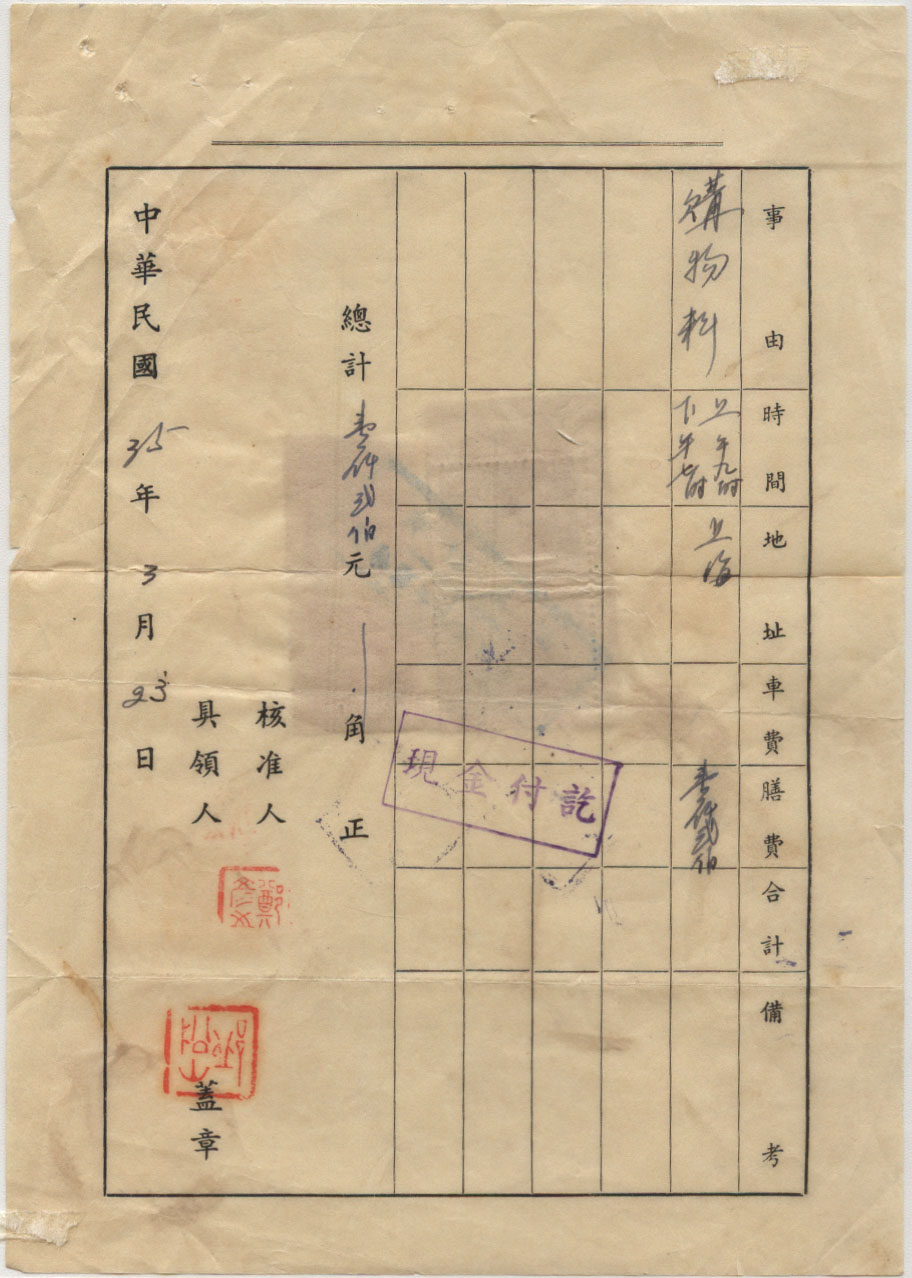 事由
時間
地址
車費
膳費
合計
備考
購物料
上午九时
下午七时
上海
壹仟弍佰
現金付訖
總計壹仟弍佰元角正
核准人
具領人
蓋章
鄭
中華民國35年3月23日